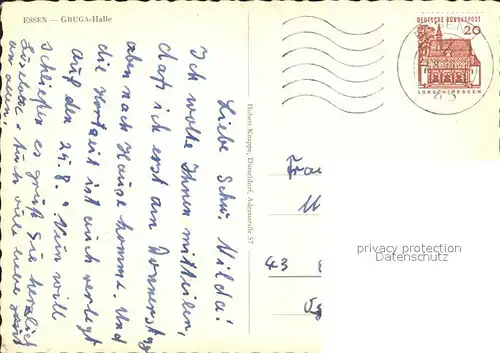 ESSEN — GRUGA-Halle
Liebe Schw. Hilda!
Ich wollte Ihnen mitteilen,
daß ich erst am Donnerstag
aber nach Hause komme. Und
die ist auch verlegt
auf den 29.8. Nun will
schließen es grüßt Sie herzlich
Auch viele liebe
an alle.
Hubert Knippe, Düsseldorf, Adersstraße 57
DEUTSCHE BUNDESPOST
20
LORSCH/HESSEN
Frau
43
privacy protection
AnsichtskartenVersand.com